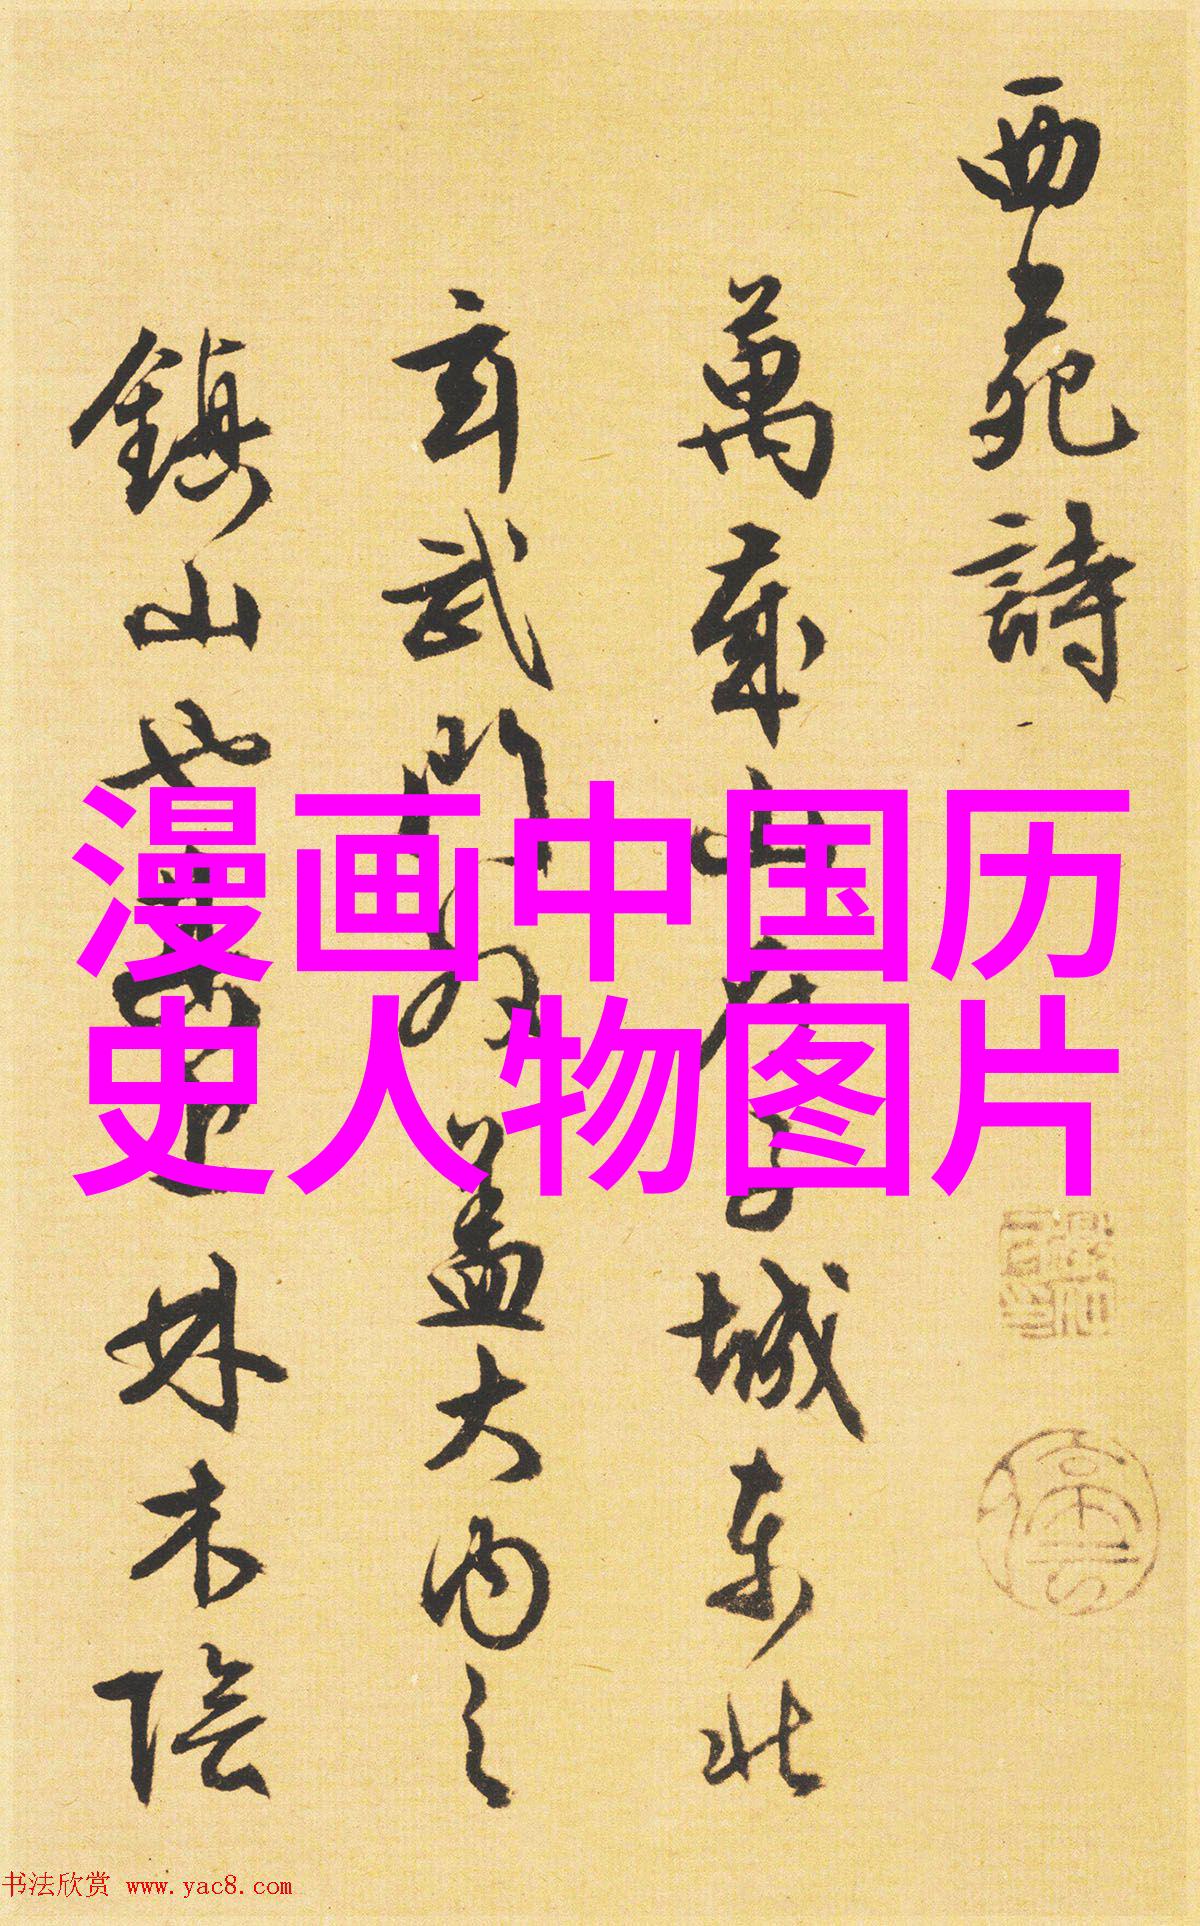 西苑詩
萬歲山在子城東北
玄武門外蓋大內之
鎮山也林木陰
漫画中国历
史人物图片
书法欣赏 www.yac8.com